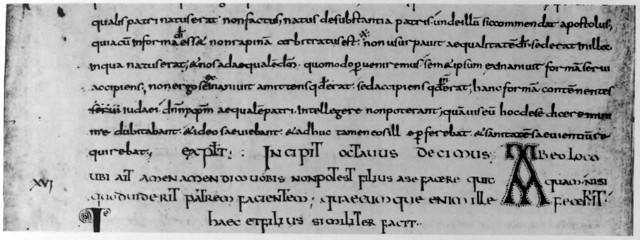 qualis patri natus erat non factus, natus de substantia patris. unde illu siccommendat apostolus,
qui acu informa di esset non rapina arbitratus est. non usurpavit aequalitate di. sed erat in illo
in qua natus erat, & nos ad aequale do. quomodo perveniremus semetipsum exinanivit forma servi
accipiens, non ergo se exinanivit amittens qd erat. sed accipiens qd n erat, hanc forma contemnentes
servi iudaei dnm xpm aequale patri intellegere non poterant, quamvis eu hoc de se dicere
me dubitabant. & ideo saeviebant. & adhuc tamen eos ille perferebat. & sanitate saevientiu
quirebat, explt. Incipit octavus decimus Ab eo loco
ubi ait amen amen dico vobis non potest filius a se facere quicquam nisi
XVI quod viderit patrem facientem, quaecumque enim ille fecerit.
haec et filius similiter facit.